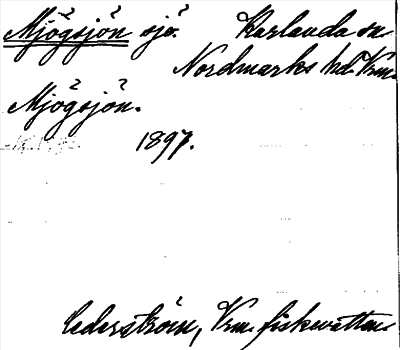 Mjögsjön sjö. Karlanda sn
Nordmarks hd. Vrm.
Mjögsjön.
1897.
Cederström, Vrm. fiskevatten